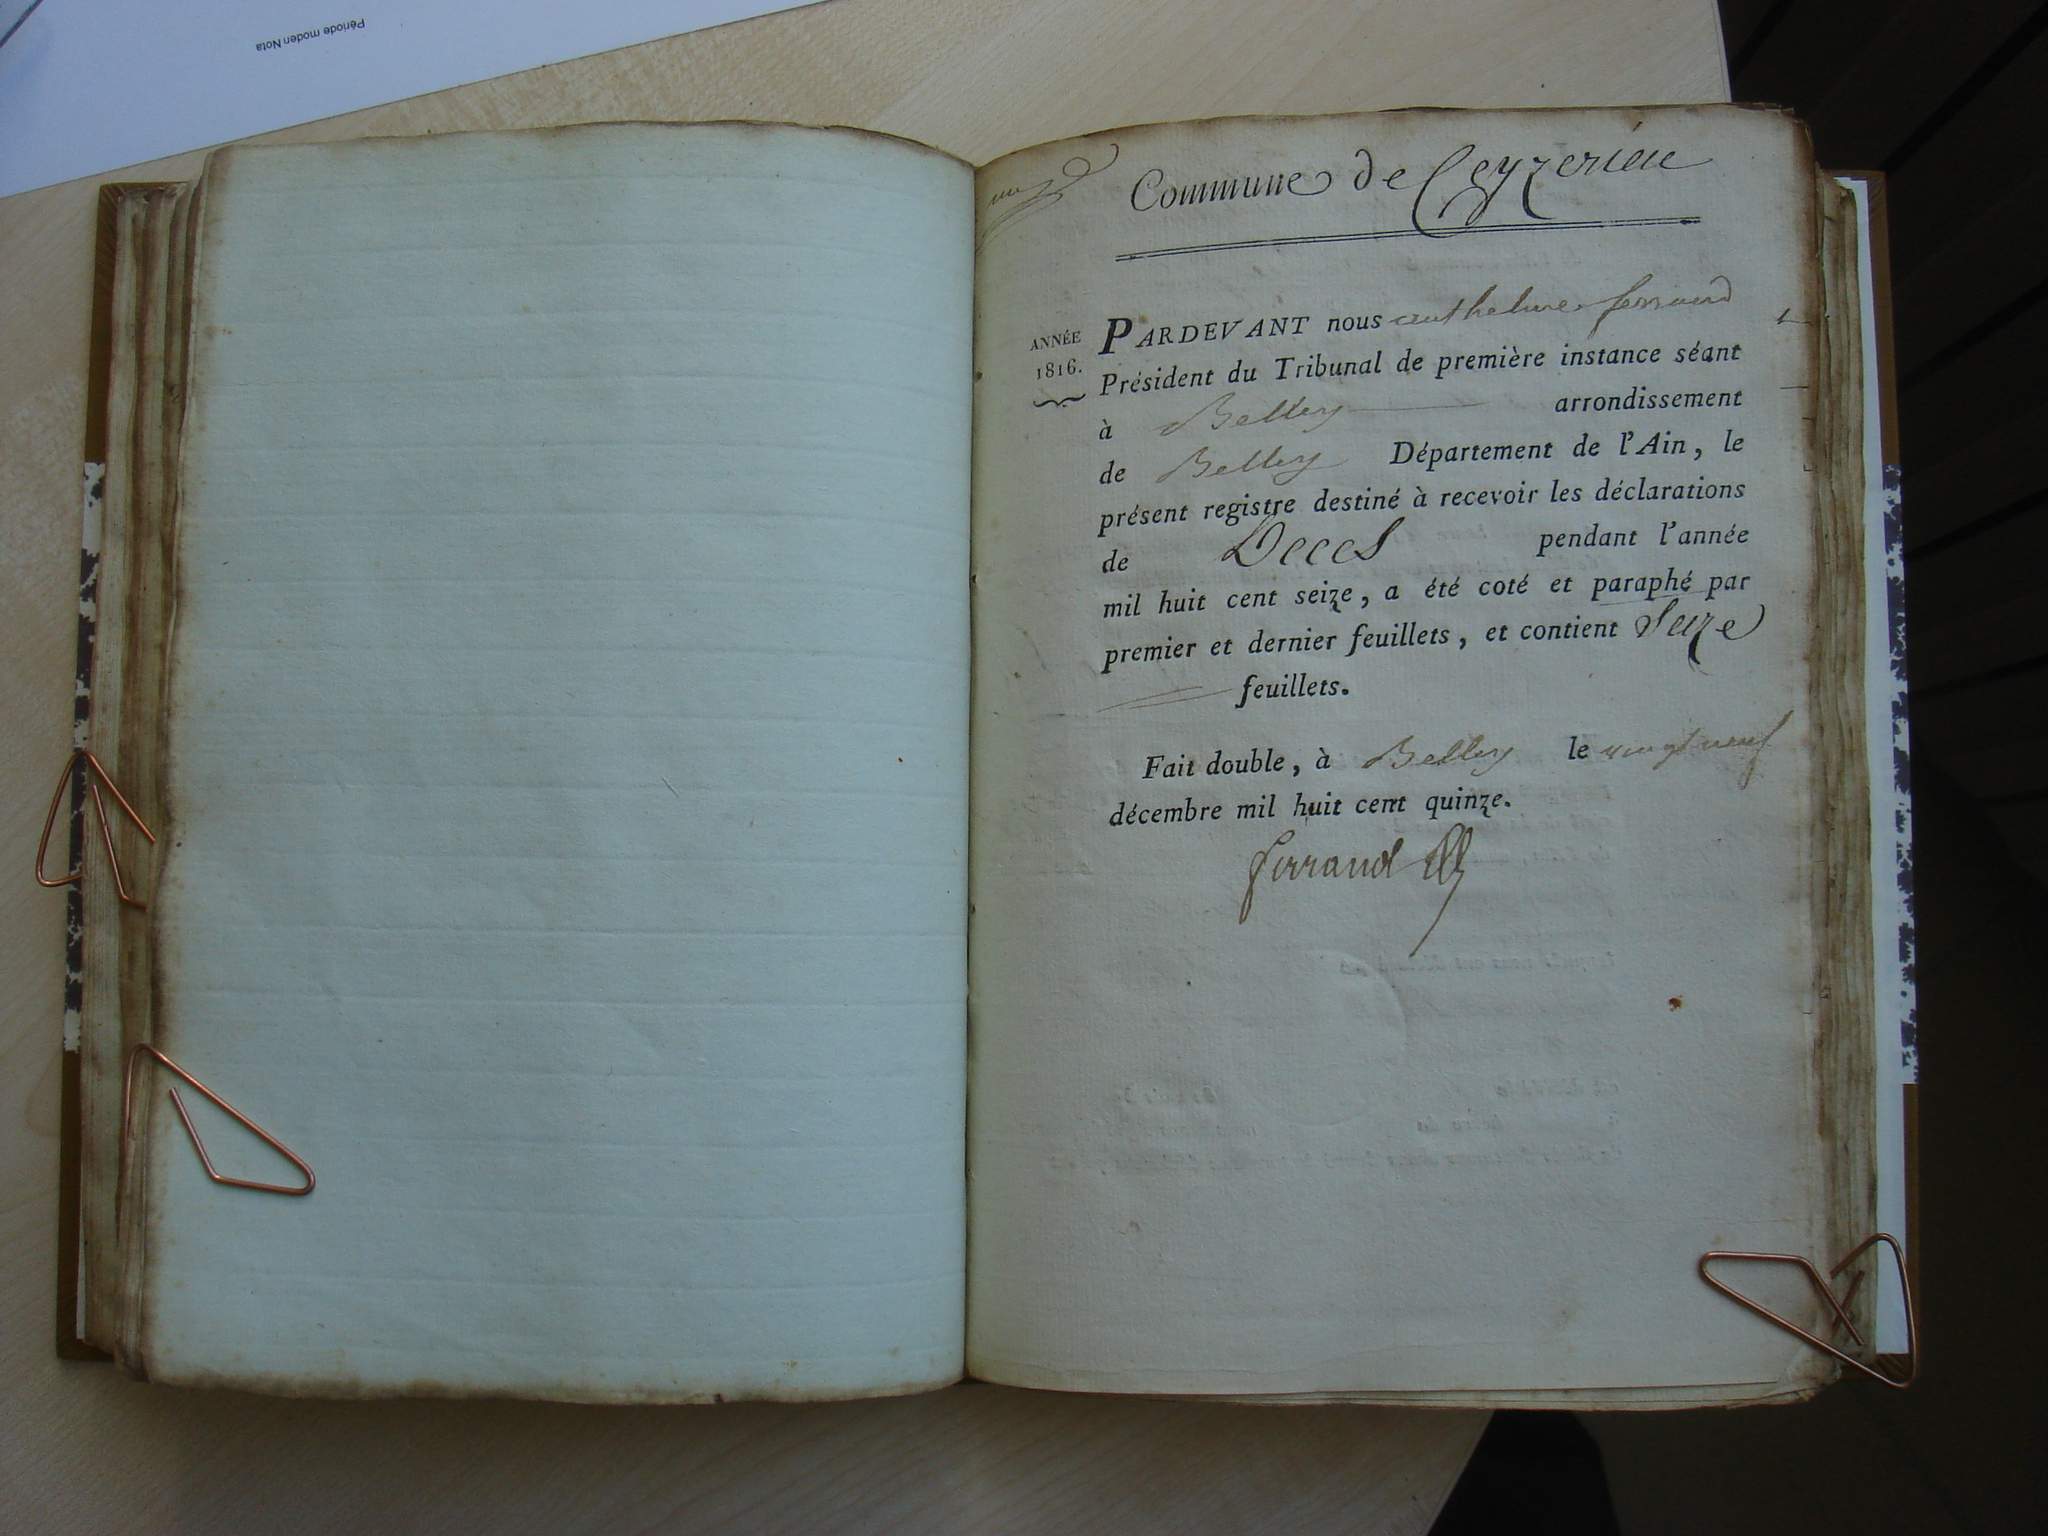 Période moden Nota
Commune de Ceyzerieu
ANNÉE
1816.
PARDEVANT nous anthelme ferrand
Président du Tribunal de première instance séant
à Belley arrondissement
de Belley Département de l'Ain, le
présent registre destiné à recevoir les déclarations
de Deces pendant l'année
mil huit cent seize, a été coté et paraphé par
premier et dernier feuillets, et contient Seize
feuillets.
Fait double, à Belley le vingt neuf
décembre mil huit cent quinze.
ferrand